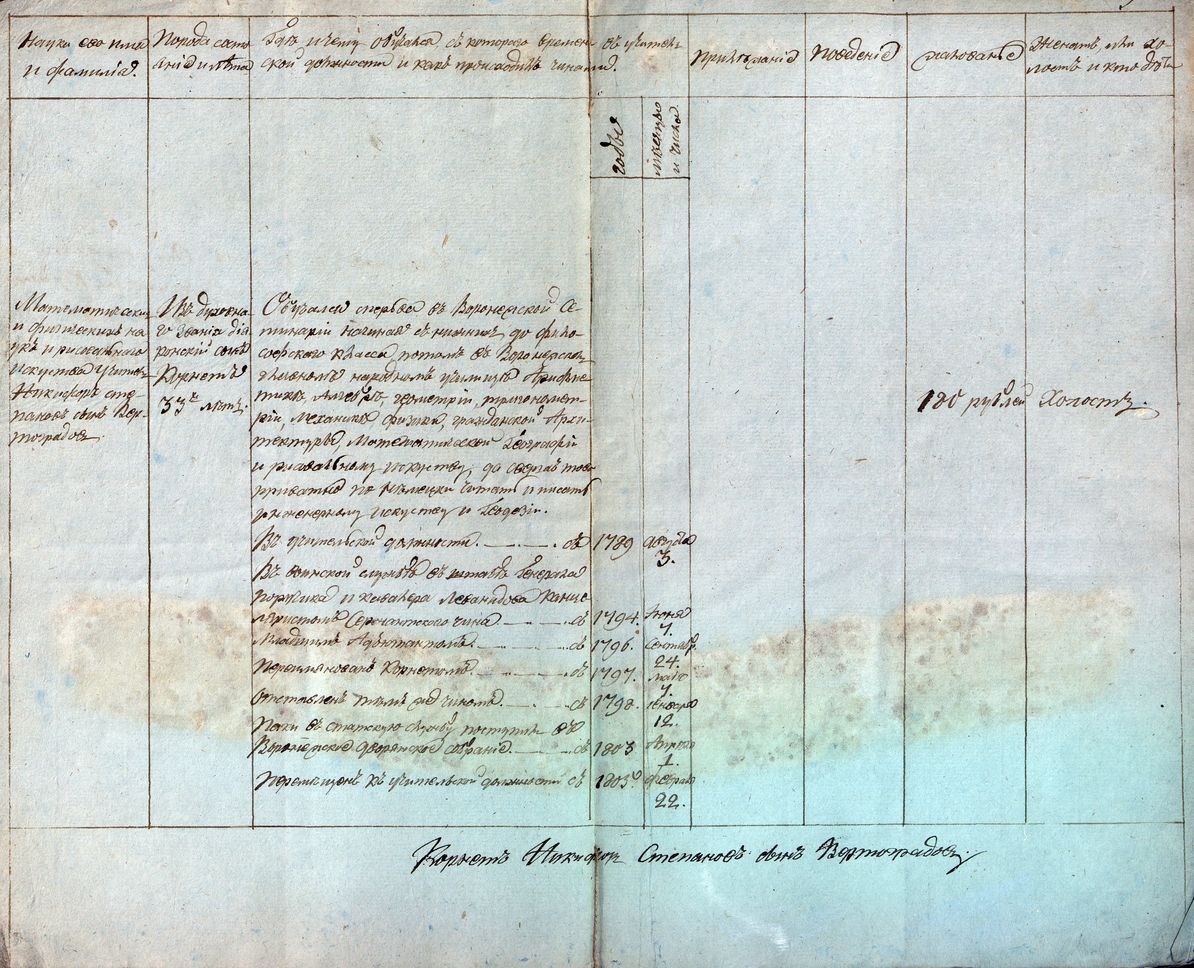 Наука его имя
и фамилiя.
Порода состо
янiе и лѣта
Гдѣ и чему обучался съ котораго времени въ учитель
ской должности и какъ происходилъ чинами.
Прилѣжанiе
Поведенiе
жалованье
Женатъ, или хо-
лостъ и кто дѣти
годы
мѣсяцы
и числа
Математическихъ
и физическихъ на
укъ и рисовальнаго
искуства учитель
Никифоръ Сте
пановъ сынъ Вер
тоградовъ.
Изъ духовна
го званiя дiа
конскiй сынъ
Корнетъ
33хъ лѣтъ.
Обучался сперьва въ Воронежской Се
минарiи начиная съ нижнихъ до фило
софскаго класса, потомъ въ Воронежскомъ
главномъ народномъ училищѣ Арифме
тикѣ, Алгебрѣ, геометрiи, тригономет
рiи, Механикѣ, физикѣ, гражданской Архи
тектурѣ, Математической Географiи
и рисовальному искуству, да сверхъ того
приватно по Нѣмецки читать и писать
инженерному искуству и Геодезiи.
Въ учительской должности. съ 1789 августа
3.
Въ воинской службѣ въ штабѣ Генерала
Порутчика и кавалера Леванидова Канце
ляристомъ Сержантскаго чина съ 1794. Iюня
7.
Младшимъ Адъютантомъ. съ 1796. Сентябр.
24.
Переименованъ Корнетомъ. съ 1797. маiя
7.
Отставленъ тѣмъ же чиномъ. съ 1798. генваря
12.
Паки въ статскую службу поступилъ въ
Воронежское дворянское собранiе. съ 1803 Апреля
1.
Перемещенъ къ учительской должности съ 1805го февраля
22.
180 рублей
Холостъ.
Корнетъ Никифоръ Степановъ сынъ Вертоградовъ.